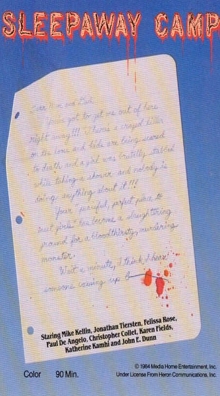 SLEEPAWAY CAMP
Dear Mom and Dad,
You've got to get me out of here
right away!!! There's a crazed killer
on the loose and kids are being scared
to death, and a girl was brutally stabbed
while taking a shower, and nobody is
doing anything about it!!!
Your "peaceful, perfect place to
has become a slaughtering
ground for a bloodthirsty, murdering
monster.
Wait a minute, I think I hear
someone coming up b
Staring Mike Kellin, Jonathan Tiersten, Felissa Rose,
Paul De Angelo, Christopher Collet, Karen Fields,
Katherine Kamhi and John E. Dunn
Color 90 Min.
© 1984 Media Home Entertainment, Inc.
Under License From Heron Communications, Inc.